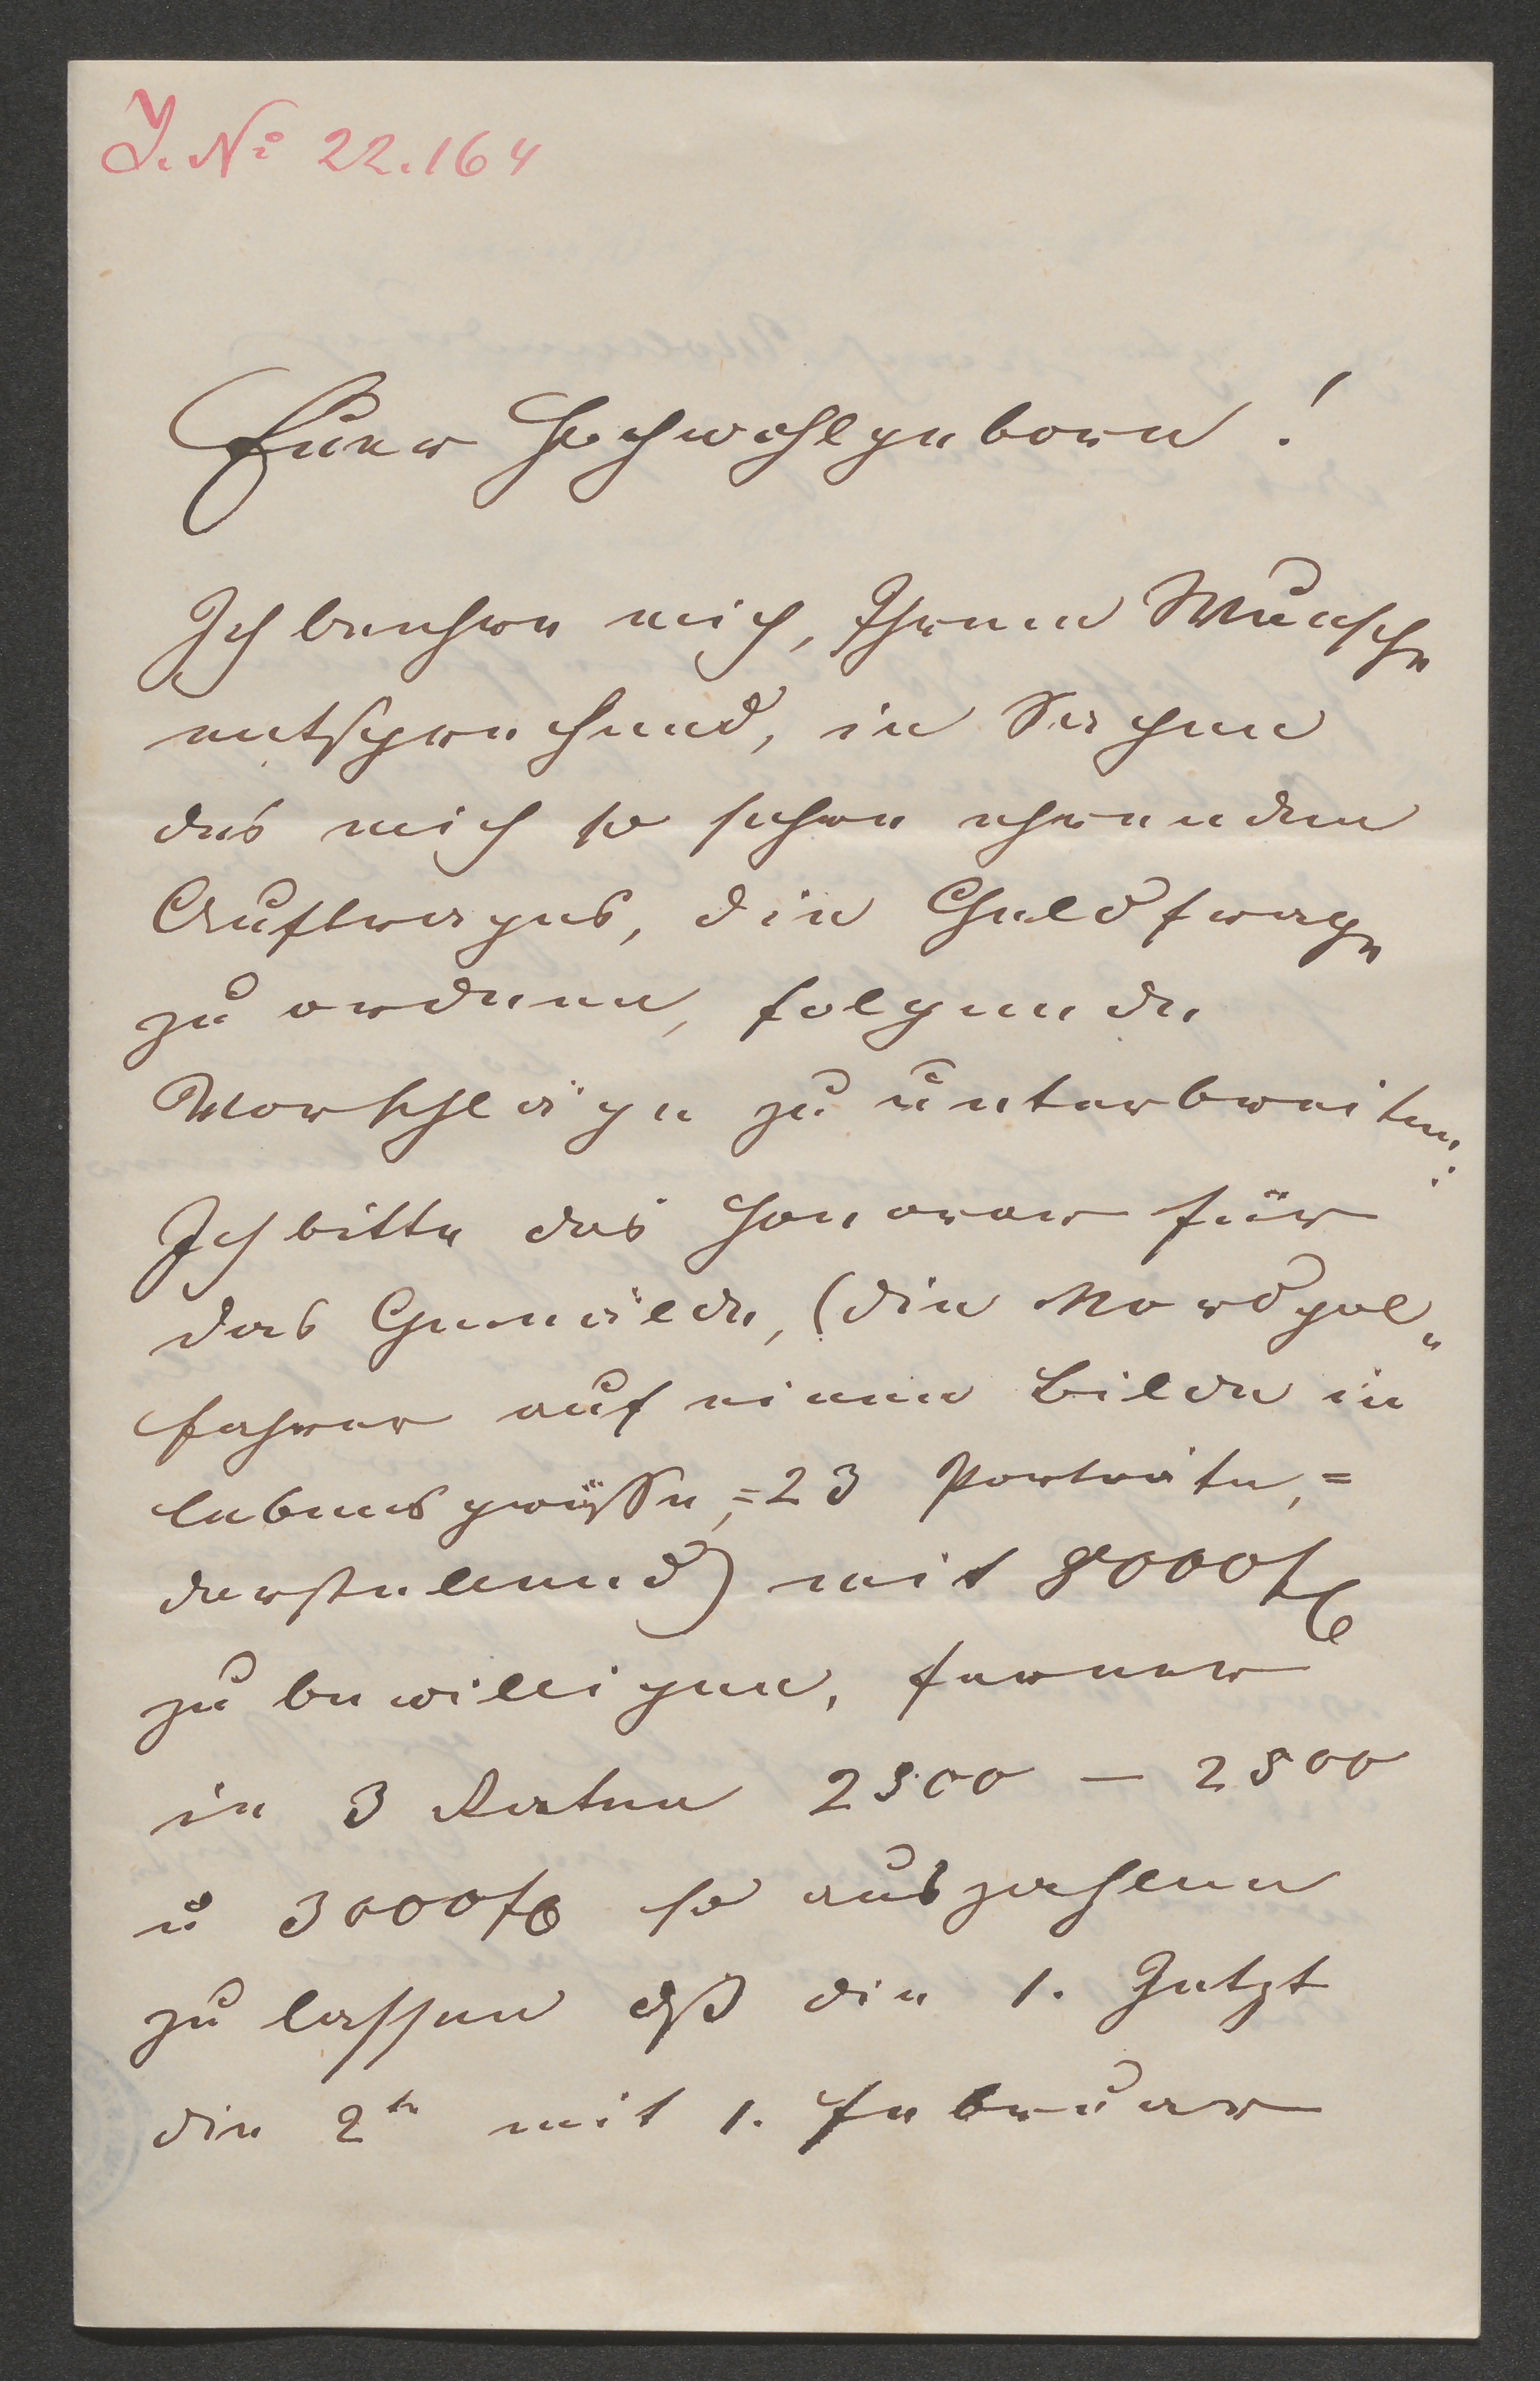 J. No 22.164
Euer Hochwohlgeborn!
Ich beehre mich, Ihrem Wunsche
entsprechend, in Sachen
des mich so sehre ehrenden
Auftrages, die Geldfrage
zu ordnen, folgende
Vorschläge zu unterbreiten:
Ich bitte das Honorar für
das Gemälde, (die Nordpol„
fahrer auf einem Bilde in
lebensgrösse, = 23 Porträte, =
darstellend) mit 8000 fl
zu bewilligen, ferner
in 3 Raten 2500 — 2500
u 3000 fl so auszahlen
zu lassen dß die 1. Jetzt
die 2te mit 1. Februar